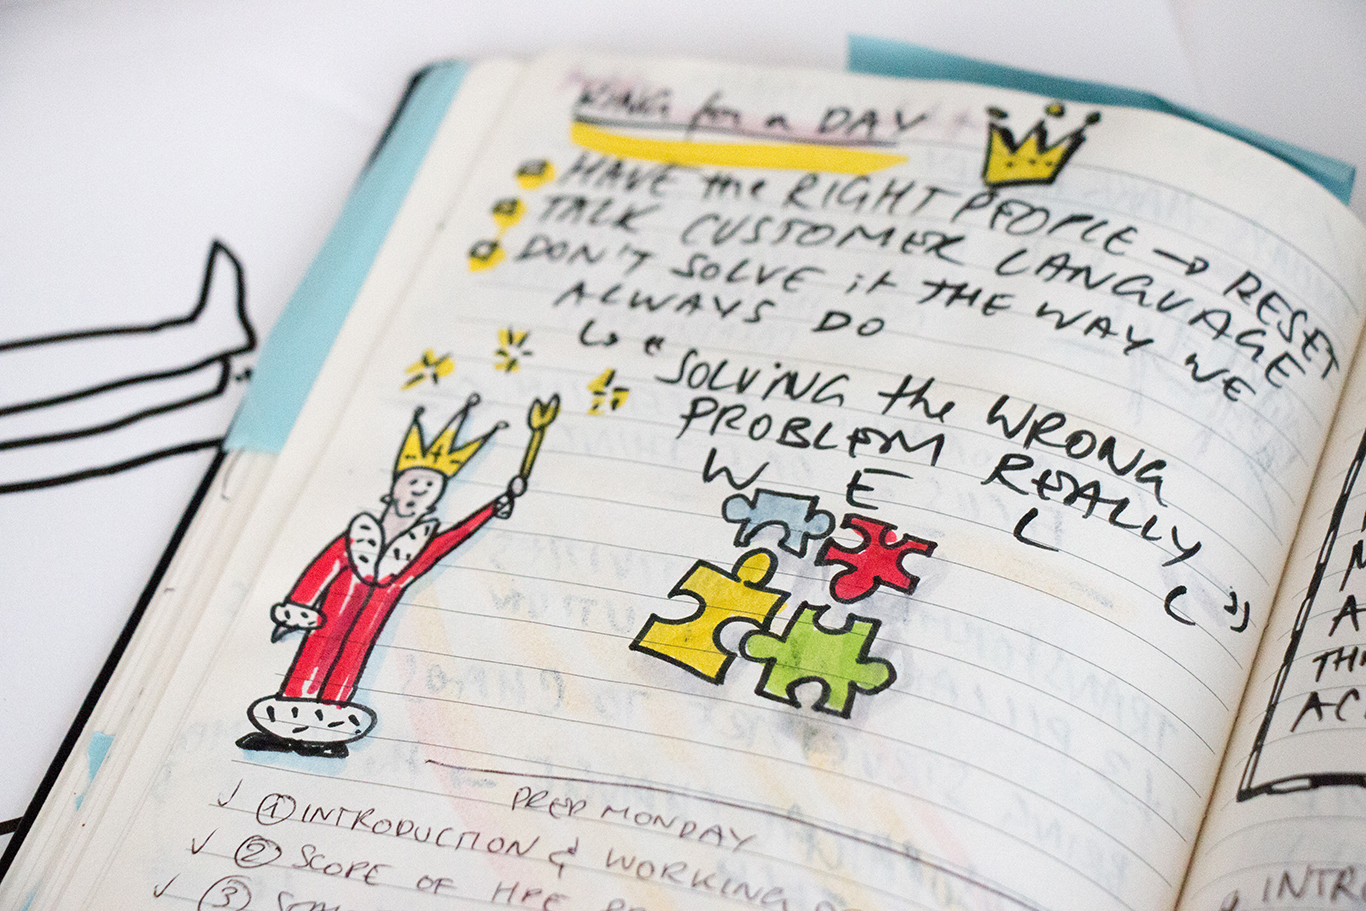 KING for a DAY
HAVE the RIGHT PEOPLE → RESET
TALK CUSTOMER LANGUAGE
DON'T SOLVE it THE WAY WE
ALWAYS DO
↳ "SOLVING the WRONG
PROBLEM REALLY
W E L L "
4
PREP MONDAY
✓ ① INTRODUCTION & WORKING
✓ ② SCOPE OF HPE
✓ ③
M
A
TH
AC
INTR